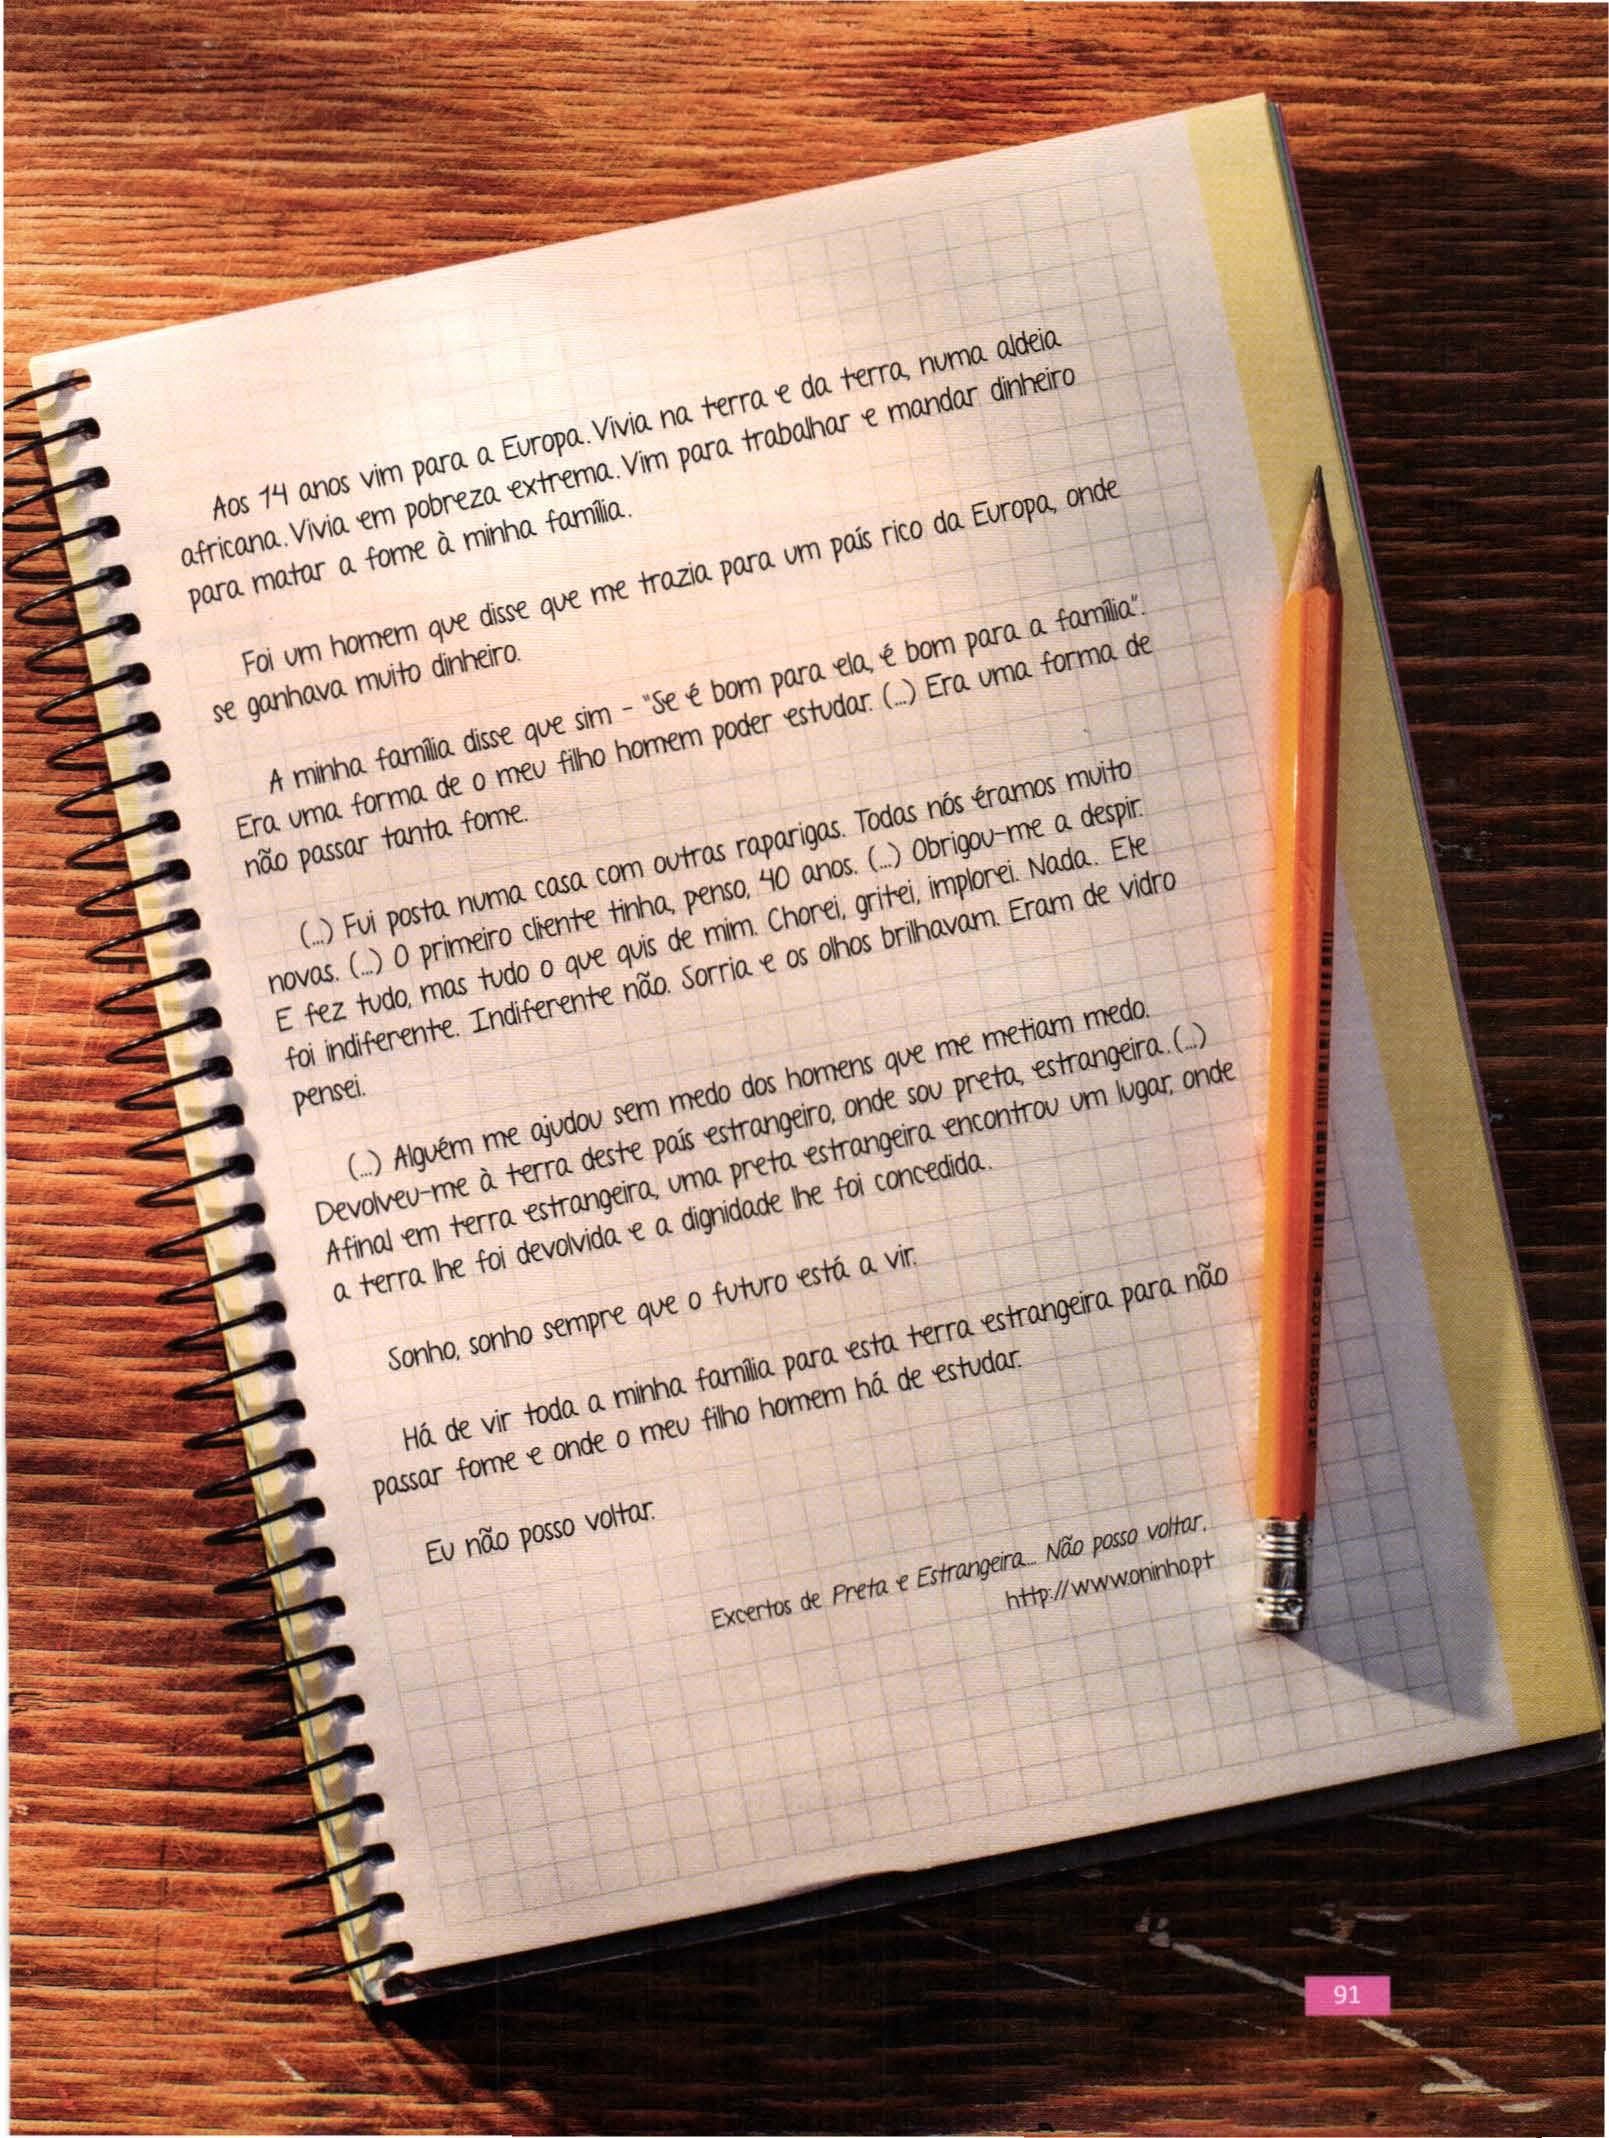 Aos 14 anos vim para a Europa. Vivia na terra e da terra, numa aldeia
africana. Vivia em pobreza extrema. Vim para trabalhar e mandar dinheiro
para matar a fome à minha família.
Foi um homem que disse que me trazia para um país rico da Europa, onde
se ganhava muito dinheiro.
A minha família disse que sim - "Se é bom para ela, é bom para a família".
Era uma forma de o meu filho homem poder estudar. (...) Era uma forma de
não passar tanta fome.
(...) Fui posta numa casa com outras raparigas. Todas nós éramos muito
novas. (...) O primeiro cliente tinha, penso, 40 anos. (...) Obrigou-me a despir.
E fez tudo, mas tudo o que quis de mim. Chorei, gritei, implorei. Nada. Ele
foi indiferente. Indiferente não. Sorria e os olhos brilhavam. Eram de vidro
pensei.
(...) Alguém me ajudou sem medo dos homens que me metiam medo.
Devolveu-me à terra deste país estrangeiro, onde sou preta, estrangeira. (...)
Afinal em terra estrangeira, uma preta estrangeira encontrou um lugar, onde
a terra lhe foi devolvida e a dignidade lhe foi concedida.
Sonho, sonho sempre que o futuro está a vir.
Há de vir toda a minha família para esta terra estrangeira para não
passar fome e onde o meu filho homem há de estudar.
Eu não posso voltar.
Excertos de Preta e Estrangeira... Não posso voltar,
http://www.oninho.pt
91